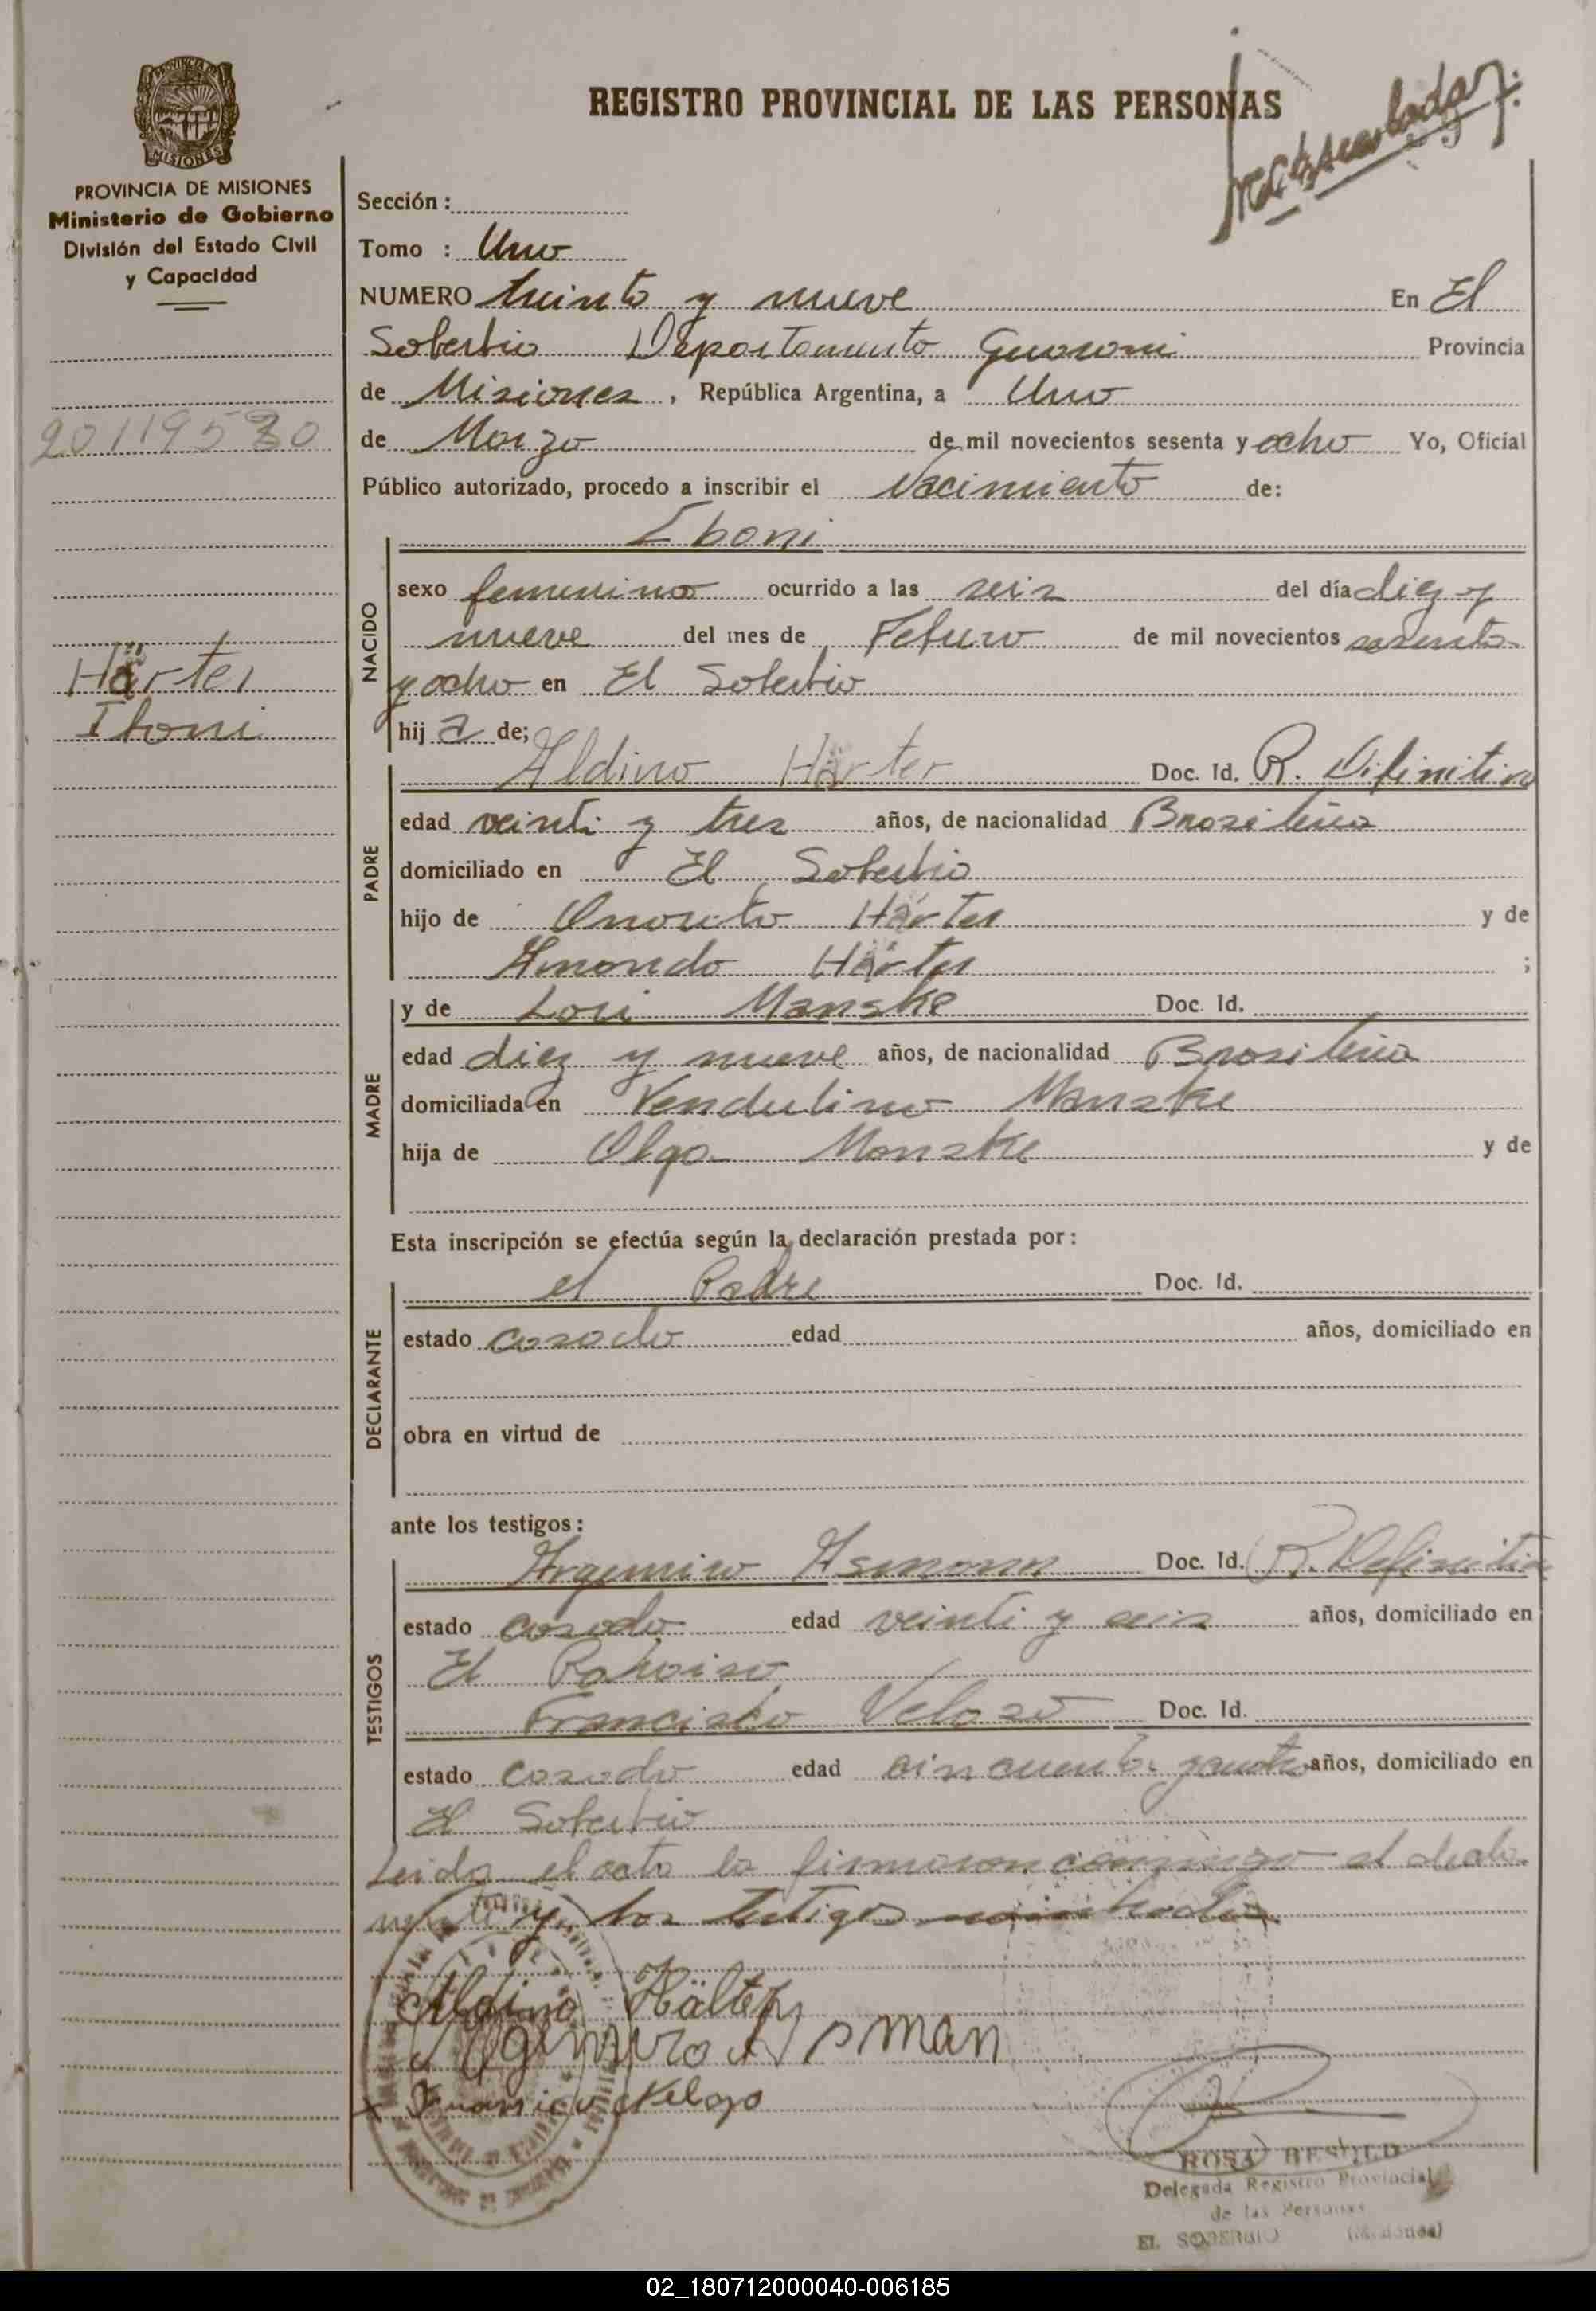 PROVINCIA DE MISIONES
Ministerio de Gobierno
División del Estado Civil
y Capacidad
20119580
Härter
Iboni
REGISTRO PROVINCIAL DE LAS PERSONAS
Sección :
Tomo : Uno
NUMERO treinta y nueve En El
Soberbio Departamento Guarani Provincia
de Misiones , República Argentina, a Uno
de Marzo de mil novecientos sesenta y ocho Yo, Oficial
Público autorizado, procedo a inscribir el Nacimiento de:
Iboni
NACIDO
sexo femenino ocurrido a las seis del día diez y
nueve del mes de Febrero de mil novecientos sesenta
y ocho en El Soberbio
hij a de;
PADRE
Aldino Härter Doc. Id. R. Difinitiva
edad veinti y tres años, de nacionalidad Brasilera
domiciliado en El Soberbio
hijo de Härter y de
Härter ;
MADRE
y de Lori Manske Doc. Id.
edad diez y nueve años, de nacionalidad Brasilera
domiciliada en Vendulino Manske
hija de Olga Manske y de
Esta inscripción se efectúa según la declaración prestada por:
DECLARANTE
el Padre Doc. Id.
estado casado edad años, domiciliado en
obra en virtud de
ante los testigos:
TESTIGOS
Argemiro Asmann Doc. Id. R. Definitiva
estado casado edad veinti y seis años, domiciliado en
El
Francisco Veloso Doc. Id.
estado casado edad cincuenta y cuatro años, domiciliado en
El Soberbio
Leida el acta la firmaron conmigo el decla
y los testigos
Aldino Hälter
Asman
ROSA
Delegada Registro Provincial
de las Personas
EL SOBERBIO (Misiones)
02_180712000040-006185